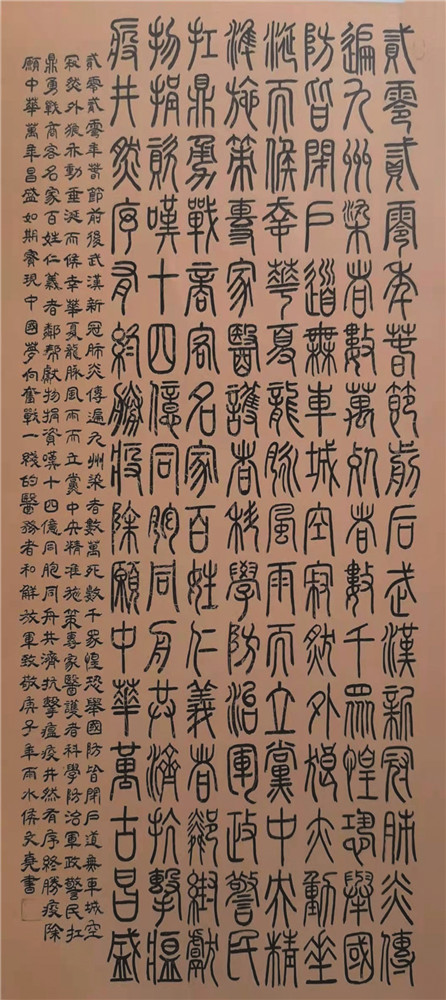 貳零貳零年春節前后武漢新冠肺炎傳
遍九州染者數萬死者數千眾惶恐舉國
防皆閉戶道無車城空寂然外狼亦動垂
涎而候幸華夏龍脈風雨而立黨中央精
準施策專家醫護者科學防治軍政警民
扛鼎勇戰商客名家百姓仁義者鄰邦獻
物捐資嘆十四億同胞同舟共濟抗擊瘟
疫井然序有終勝疫除願中華萬古昌盛
貳零貳零年春節前後武漢新冠肺炎傳遍九州染者數萬死數千眾惶恐舉國防皆閉戶道無車城空
寂然外狼亦動垂涎而候幸華夏龍脈風雨而立黨中央精准施策專家醫護者科學防治軍政警民扛
鼎勇戰商客名家百姓仁義者鄰幫獻物捐資嘆十四億同胞同舟共濟抗擊瘟疫井然有序終勝疫除
願中華萬年昌盛如期實現中國夢向奮戰一綫的醫務者和解放軍致敬庚子年雨水侯文堯書